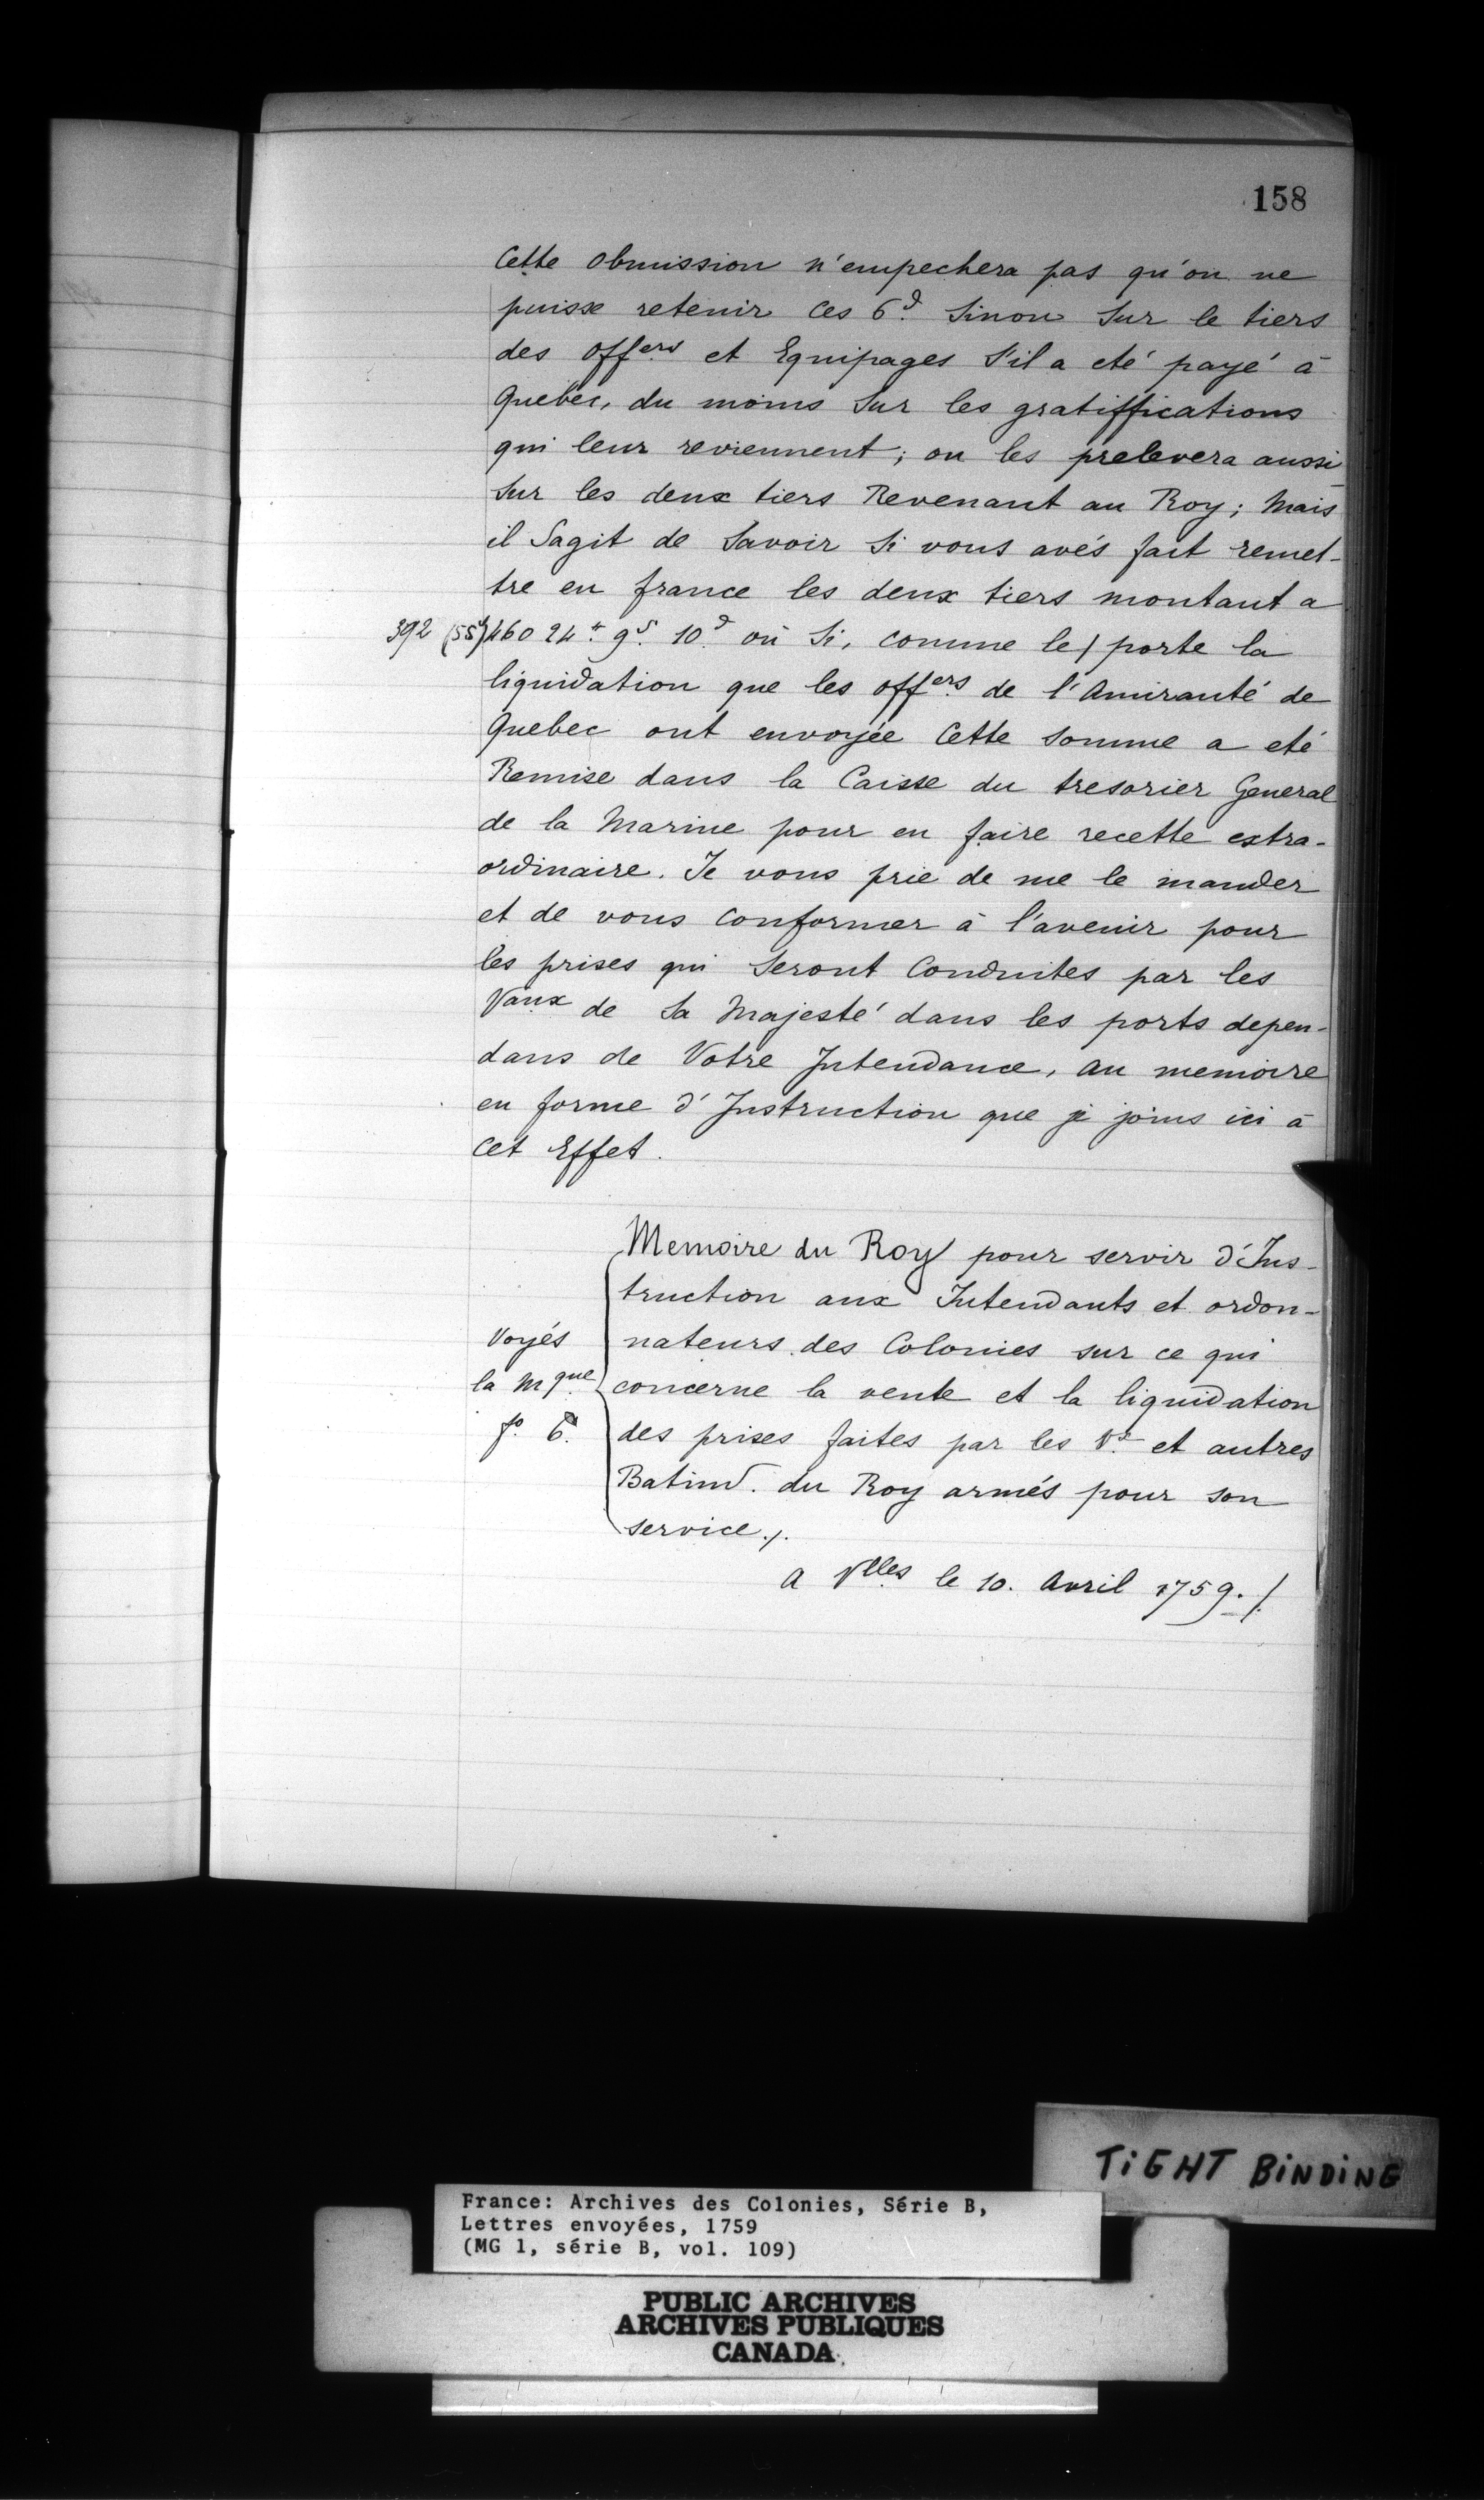 158
Cette obmission n'empechera pas qu'on ne
puisse retenir ces 6d. Sinon Sur le tiers
des offers et Equipages S'il a eté payé à
Quebec, du moins Sur les gratiffications
qui leur reviennent; on les prelevera aussi
Sur les deux tiers Revenant au Roy; Mais
il Sagit de Savoir Si vous avés fait remet-
tre en france les deux tiers montant a
392 46024# 9s. 10d. où Si, comme le/porte la
liquidation que les offers de l'Amirauté de
Quebec ont envoyée Cette somme a eté
Remise dans la Caisse du tresorier General
de la Marine pour en faire recette extra-
ordinaire. Je vous prie de me le mander
et de vous conformer à l'avenir pour
les prises qui Seront Conduites par les
Vaux de Sa Majesté dans les ports depen-
dans de Votre Intendance, au memoire
en forme d'Instruction que je joins ici à
cet Effet.
Memoire du Roy pour servir d'Ins-
truction aux Intendants et ordon-
nateurs des Colonies sur ce qui
concerne la vente et la liquidation
des prises faites par les Vx. et autres
Batims. du Roy armés pour son
service./.
Voyés
la Mque
fo. 6.
A Vlles le 10. Avril 1759./.
TIGHT BINDING
France: Archives des Colonies, Série B,
Lettres envoyées, 1759
(MG 1, série B, vol. 109)
PUBLIC ARCHIVES
ARCHIVES PUBLIQUES
CANADA